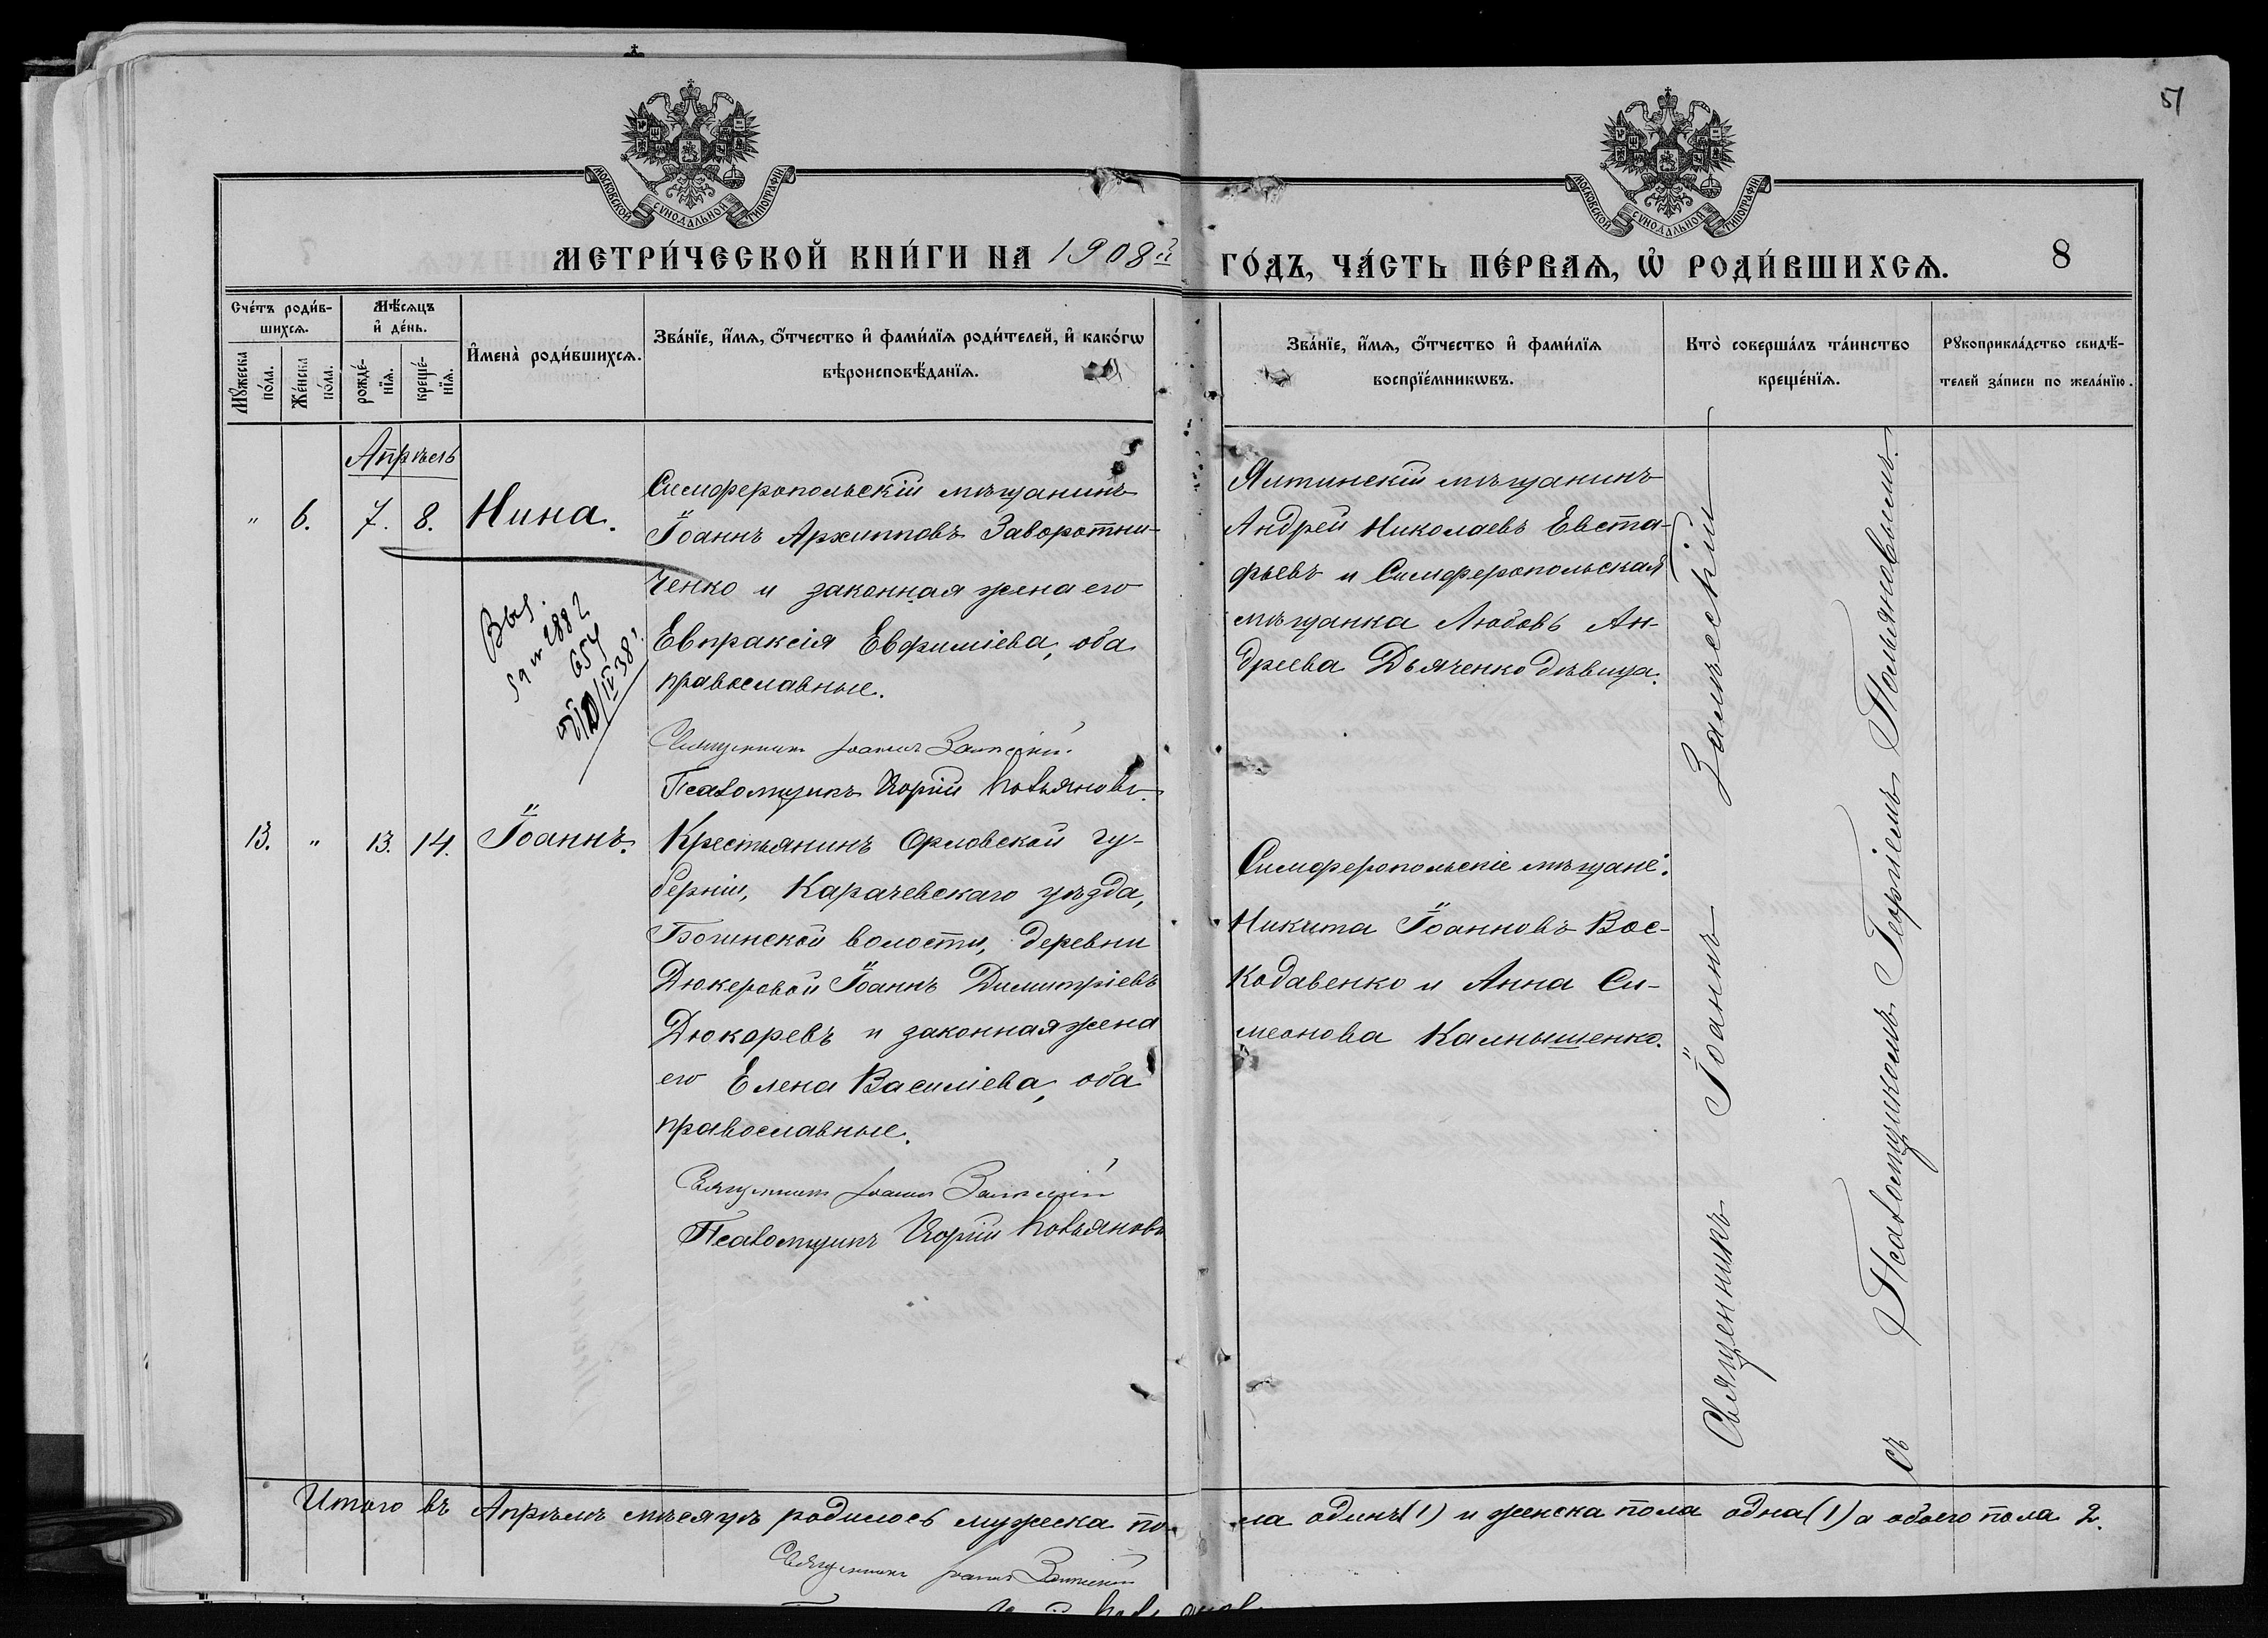 51
МОСКОВСКОЙ СѴНОДАЛЬНОЙ ТИПОГРАФІИ
МОСКОВСКОЙ СѴНОДАЛЬНОЙ ТИПОГРАФІИ
МЕТРИ́ЧЕСКОЙ КНИ́ГИ НА 1908й ГО́ДЪ, ЧА́СТЬ ПЕ́РВАѦ, Ѡ҆ РОДИ́ВШИХСѦ. 8
Сче́тъ роди́в-
шихсѧ.
Мꙋ́жеска
по́ла.
Же́нска
по́ла.
Мѣ́сѧцъ
и҆ де́нь.
рожде́-
нїѧ.
креще́-
нїѧ.
И҆мена̀ роди́вшихсѧ.
Зва́нїе, и҆́мѧ, ѻ҆́тчество и҆ фами́лїѧ роди́телей, и҆ како́гѡ
вѣроисповѣ́данїѧ.
Зва́нїе, и҆́мѧ, ѻ҆́тчество и҆ фами́лїѧ
воспрїе́мникѡвъ.
Кто̀ соверша́лъ та́инство
креще́нїѧ.
Рꙋкоприкла́дство свидѣ́-
телей за́писи по жела́нїю.
Апрѣль
" 6. 7. 8. Нина.
Симферопольскій мѣщанинъ
Іоаннъ Архипповъ Заворотни-
ченко и законная жена его
Евпраксія Евфиміева, оба
православные.
Священникъ Іоаннъ Замѣскій
Псаломщикъ
Ялтинскій мѣщанинъ
Андрей Николаевъ Евста-
фьевъ и Симферопольская
мѣщанка Любовь Ан-
дреева Дьяченко дѣвица.
2882
654
IV 38
13. " 13. 14. Іоаннъ.
Крестьянинъ Орловской гу-
берніи, Карачевскаго уѣзда,
волости, деревни
Дюкеровой Іоаннъ Димитріевъ
Дюкаревъ и законная жена
его Елена Василіева, оба
православные.
Священникъ Іоаннъ Замѣскій
Псаломщикъ
Симферопольскіе мѣщане:
Никита Іоанновъ Вос-
кодавенко и Анна Си-
меонова Калнышенко.
Священникъ Іоаннъ Замѣскій
съ Псаломщикомъ Георгіемъ
Итого въ Апрѣлѣ мѣсяцѣ родилось мужеска по- ла одинъ (1) и женска пола одна (1) а обоего пола 2.
Священникъ Іоаннъ Замѣскій